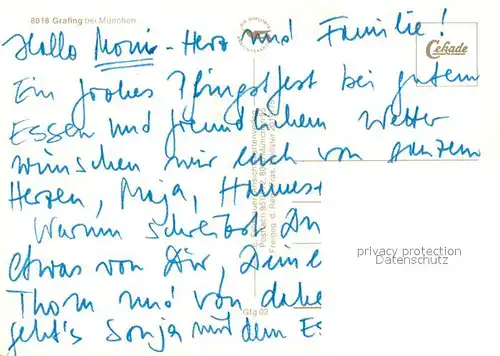 8018 Grafing bei München
Hallo Moni-Herz und Familie!
Cekade
Ein frohes Pfingstfest bei gutem
Essen und freundlichem Wetter
wünschen wir euch von ganzem
Herzen, Maja, Hannes+
Warum schreibst Du
etwas von Dir, Deine
privacy protection
Datenschutz
Thom und von dahe
geht's Sonja mit dem Es
Gfg 02